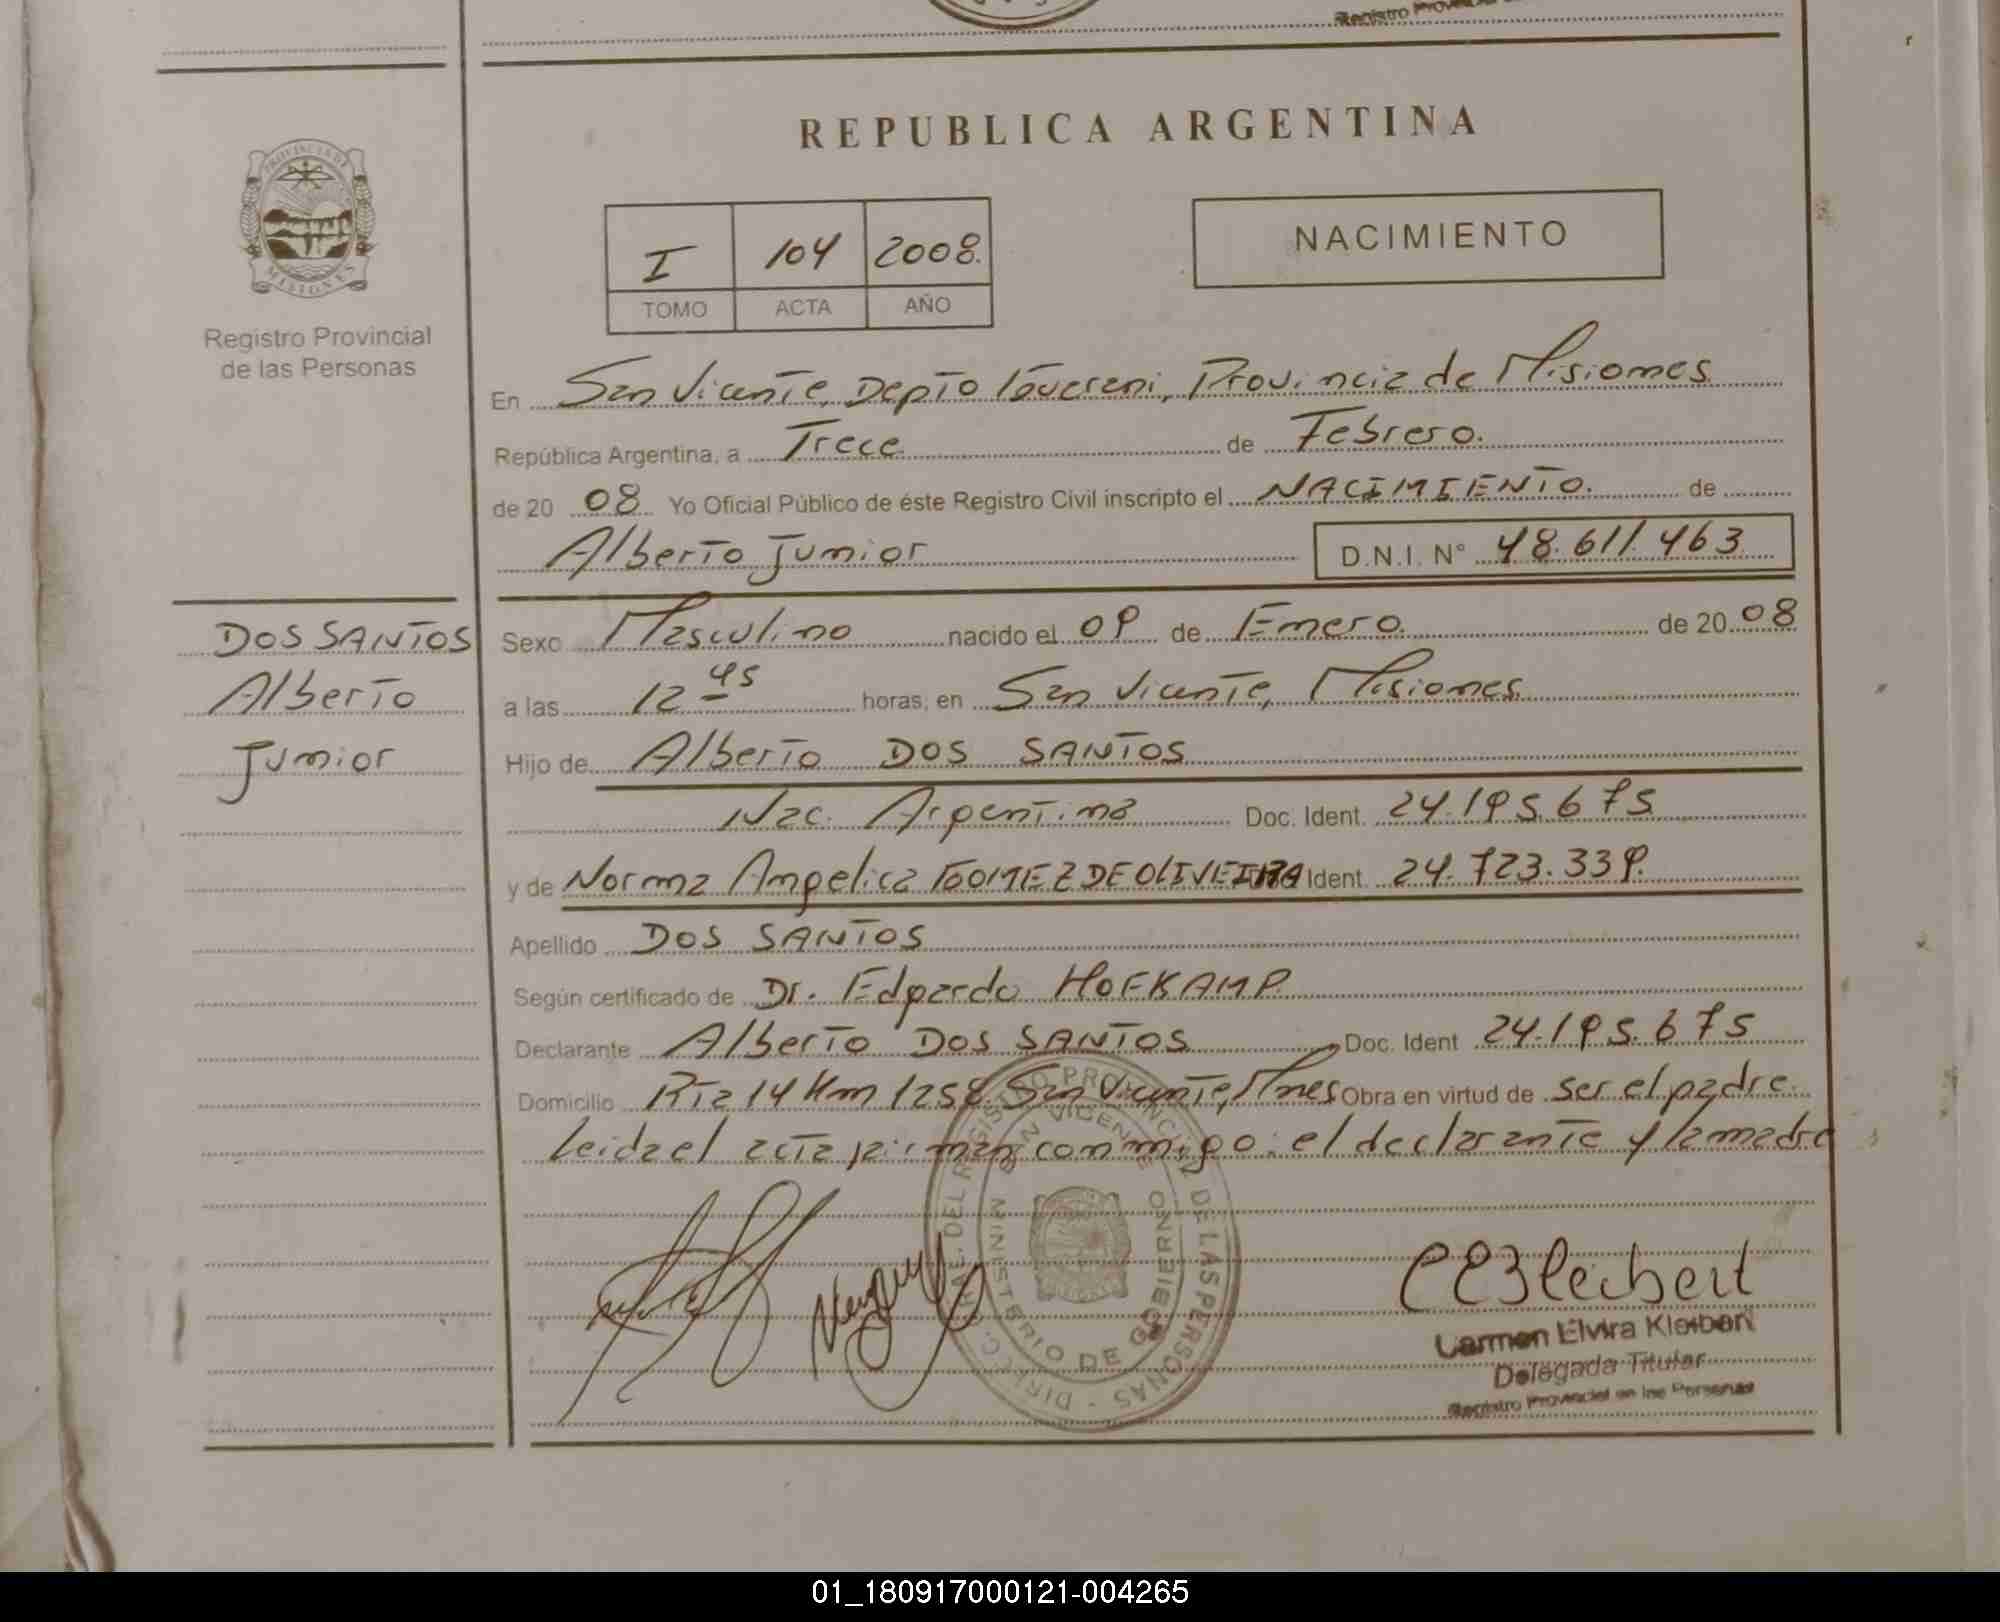 REPUBLICA ARGENTINA
PROVINCIA DE
MISIONES
Registro Provincial
de las Personas
I 104 2008.
TOMO ACTA AÑO
NACIMIENTO
En San Vicente, Depto Guarani, Provincia de Misiones
República Argentina, a Trece de Febrero.
de 20 08 Yo Oficial Público de éste Registro Civil inscripto el NACIMIENTO. de
Alberto Junior D.N.I. N° 48.611.463
DOS SANTOS
Alberto
Junior
Sexo Masculino nacido el 09 de Enero. de 20 08
a las 12 45 horas, en San Vicente, Misiones
Hijo de Alberto DOS SANTOS
Nac. Argentina Doc. Ident. 24.195.675
y de Norma Angelica GOMEZ DE OLIVEIRA Ident. 24.723.339.
Apellido DOS SANTOS
Según certificado de Dr. Edgardo HOFKAMP.
Declarante Alberto DOS SANTOS Doc. Ident 24.195.675
Domicilio Rta 14 Km 1258 San Vicente, Mnes Obra en virtud de ser el padre.
Leida el acta firman conmigo: el declarante y la madre
DIRECC. GRAL. DEL REGISTRO PROVINCIAL DE LAS PERSONAS -
SAN VICENTE
MINISTERIO DE GOBIERNO
CEKleibert
Carmen Elvira Kleibert
Delegada Titular
Registro Provincial de las Personas
01_180917000121-004265